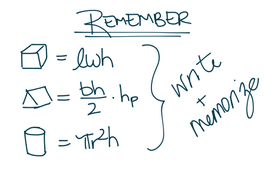 REMEMBER
= lwh
= bh/2 · hp
= πr²h
write
+
memorize